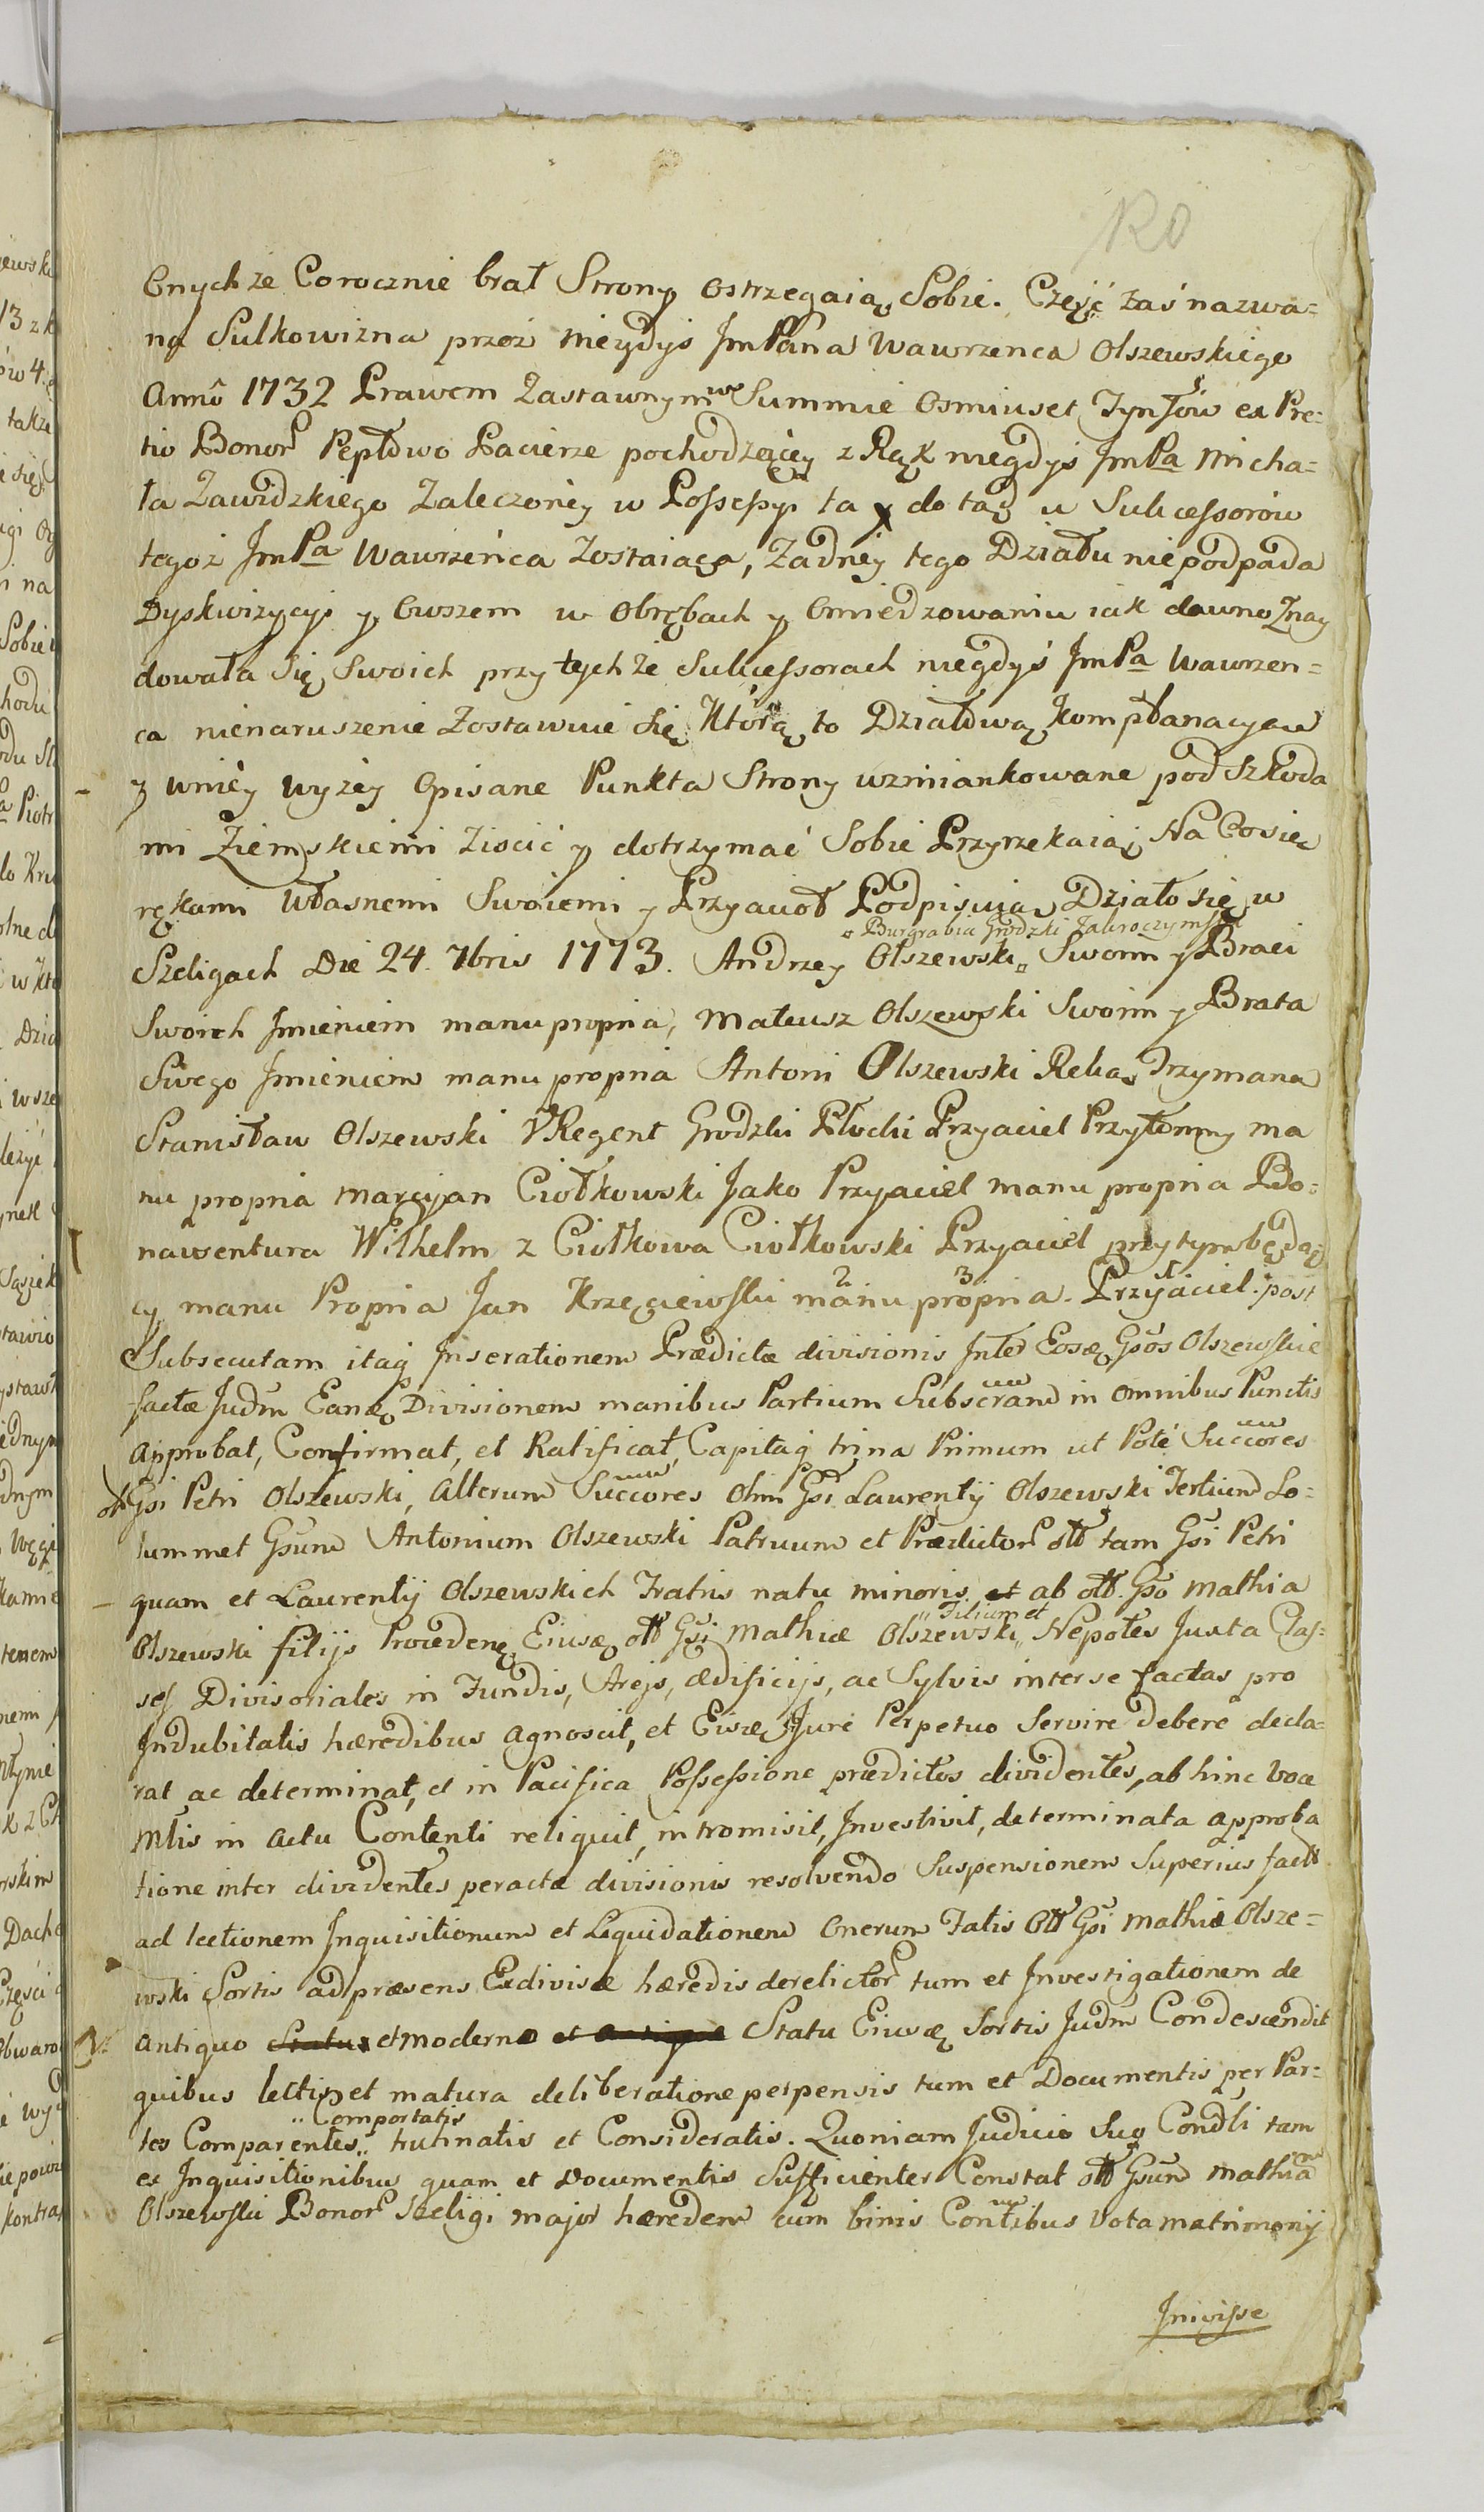 Onychże Corocznie brał Strony ostrzegaią Sobie. Część zaś nazwa=
na Sulkowizna przez niegdyś JmPana Wawrzenca Olszewskiego
Annô 1732 Prawem Zastawnym we Summie Osmiuset Tynfów ex Pre=
tio Bonor Pepłowo Pacierze pochodzącey z Rąk niegdyś JmPa Micha=
ła Zawidzkiego Zaleczoney w Possessyi ta y do tąd u Sukcessorów
tegoż JmPa Wawrzeńca Zostaiąca, Żadney tego Działu nie podpada
Dyskwizycyi y Owszem w Obrębach y Omiedzowaniu iak dawno Znay
dowała się Swoich przy tychże Sukcessorach niegdyś JmPa Wawrzen=
ca nienaruszenie Zostawuie się, Którą to Działową Komplanacyą
y wniey wyżey Opisane Punkta Strony wzmiankowane pod Szkoda
mi Ziemskiemi Ziścić y dotrzymać Sobie Przyrzekaią Na Co się
rękami własnemi Swoiemi y Przyaciół Podpisuią, Działo się w
¤ Burgrabia Grodzki Zakroczymski
Szeligach Die 24. 7bris 1773. Andrzey Olszewski ¤ Swoim y Braci
Swoich Jmieniem manu propria, Mateusz Olszewski Swoim y Brata
Swego Jmieniem manu propria Antoni Olszewski Ręką Trzymaną
Stanisław Olszewski VRegent Grodzki Płocki Przyaciel Przytomny ma
nu propria Marcyjan Ciołkowski Jako Przyaciel manu propria Bo=
nawentura Wilhelm z Ciołkowa Ciołkowski Przyaciel przy tym będą
cy manu Propria Jan Krzęciewski 2 manu 3 propria. 1 Przyiaciel. post
Subsecutam itaq Inserationem Prædictæ divisionis Inter Eosq Gsos Olszewskie
factæ Judm Eanq Divisionem manibus Partium Subscram in omnibus Punctis
approbat, Confirmat, et Ratificat, Capitaq trina Primum ut Potè Succores
olt Gsi Petri Olszewski, Alterum Succores Olim Gsi Laurentij Olszewski Tertium So=
lummet Gsum Antonium Olszewski Patruum et Prædictor olt tam Gsi Petri
quam et Laurentij Olszewskich Fratris natu minoris et ab olt Gso Mathia
" Filium et
Olszewski filijs Procedenq Eiusq olt Gsi Mathiæ Olszewski " Nepotes Juxta Clas=
ses Divisoriales in Fundis, Areis, ædificijs, ac Sylvis inter se factas pro
Indubitatis hæredibus agnoscit, et Eisq Jure Perpetuo Servire debere decla=
rat ac determinat, et in Pacifica Possessione prædictos dividentes, ab hinc voca
mtis in Actu Contenti reliquit, intromisit, Investivit, determinata approba
tione inter dividentes peractæ divisionis resolvendo Suspensionem Superius fact
ad lectionem Inquisitionum et Liquidationem Onerum Fatis Olt Gsi Mathiæ Olsze=
wski Sortis ad præsens Exdivisæ hæredis derelictor tum et Investigationem de
antiquo Statu et moderno et antiquo Statu Eiusq Sortis Judm Condescendit
quibus lectis et matura deliberatione perpensis tum et Documentis per Par=
" Comportatis
tes Comparentes " trutinatis et Consideratis. Quoniam Judicio Suo Condli tam
ex Inquisitionibus quam et Documentis Sufficienter Constat olt Gsum Mathiam
Olszewski Bonor Szeligi major hæredem cum binis Contibus Vota matrimonij
Inivisse